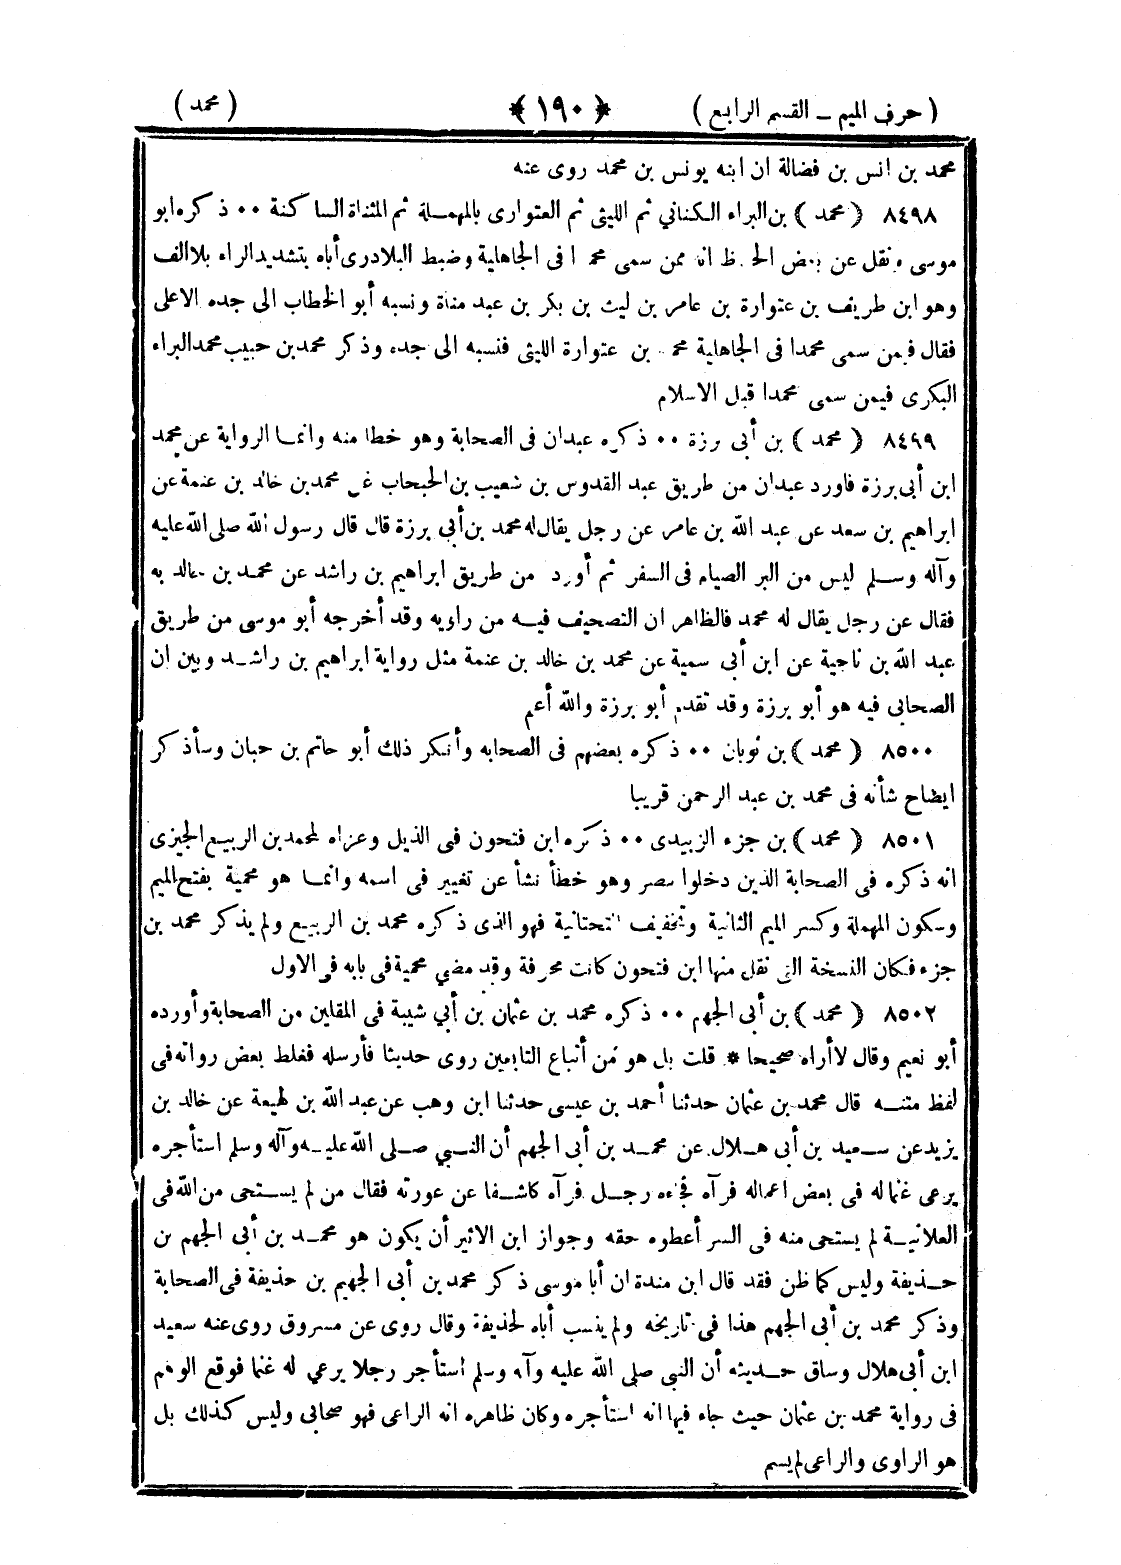 ( حرف الميم ـ القسم الرابع ) ﴿ ١٩٠ ﴾ ( محمد )
محمد بن انس بن فضالة ان ابنه يونس بن محمد روى عنه
٨٤٩٨ ( محمد ) بن البراء الكناني ثم الليثى ثم العتوارى بالمهملة ثم المثناة الساكنة ٠٠ ذكره ابو
موسى ونقل عن بعض الحفاظ انه ممن سمى محمدا فى الجاهلية وضبط البلادرى أباه بتشديد الراء بلا الف
وهو ابن طريف بن عتوارة بن عامر بن ليث بن بكر بن عبد مناة ونسبه أبو الخطاب الى جده الاعلى
فقال فيمن سمى محمدا فى الجاهلية محمد بن عتوارة الليثى فنسبه الى جده وذكر محمد بن حبيب محمد البراء
البكرى فيمن سمى محمدا قبل الاسلام
٨٤٩٩ ( محمد ) بن أبي برزة ٠٠ ذكره عبدان فى الصحابة وهو خطا منه وانما الرواية عن محمد
ابن أبى برزة فاورد عبدان من طريق عبد القدوس بن شعيب بن الحبحاب عن محمد بن خالد بن عنمة عن
ابراهيم بن سعد عن عبد الله بن عامر عن رجل يقال له محمد بن أبي برزة قال قال رسول الله صلى الله عليه
وآله وسلم ليس من البر الصيام فى السفر ثم أورد من طريق ابراهيم بن راشد عن محمد بن خالد به
فقال عن رجل يقال له محمد فالظاهر ان التصحيف فيه من راويه وقد أخرجه أبو موسى من طريق
عبد الله بن ناجية عن ابن أبى سمية عن محمد بن خالد بن عنمة مثل رواية ابراهيم بن راشد وبين ان
الصحابى فيه هو أبو برزة وقد تقدم أبو برزة والله أعم
٨٥٠٠ ( محمد ) بن ثوبان ٠٠ ذكره بعضهم فى الصحابه وأنكر ذلك أبو حاتم بن حبان وسأذكر
ايضاح شأنه فى محمد بن عبد الرحمن قريبا
٨٥٠١ ( محمد ) بن جزء الزبيدى ٠٠ ذكره ابن فتحون فى الذيل وعزاه لمحمد بن الربيع الجيزى
انه ذكره فى الصحابة الذين دخلوا مصر وهو خطأ نشأ عن تغيير فى اسمه وانما هو محمية بفتح الميم
وسكون المهملة وكسر الميم الثانية وتخفيف التحتانية فهو الذى ذكره محمد بن الربيع ولم يذكر محمد بن
جزء فكان النسخة التى نقل منها ابن فتحون كانت محرفة وقد مضي محمية فى بابه فى الاول
٨٥٠٢ ( محمد ) بن أبى الجهم ٠٠ ذكره محمد بن عثمان بن أبي شيبة فى المقلين من الصحابة وأورده
أبو نعيم وقال لا أراه صحيحا * قلت بل هو من أتباع التابعين روى حديثا فأرسله فغلط بعض رواته فى
لفظ متنه قال محمد بن عثمان حدثنا أحمد بن عيسى حدثنا ابن وهب عن عبد الله بن لهيعة عن خالد بن
يزيد عن سعيد بن أبى هلال عن محمد بن أبى الجهم أن النبي صلى الله عليه وآله وسلم استأجره
يرعى غنما له فى بعض اعماله فرآه فجاءه رجل فرآه كاشفا عن عورته فقال من لم يستحى من الله فى
العلانية لم يستحى منه فى السر أعطوه حقه وجواز ابن الاثير أن يكون هو محمد بن أبى الجهم بن
حذيفة وليس كما ظن فقد قال ابن مندة ان أبا موسى ذكر محمد بن أبى الجهيم بن حذيفة فى الصحابة
وذكر محمد بن أبى الجهم هذا فى تاريخه ولم ينسب أباه لحذيفة وقال روى عن مسروق روى عنه سعيد
ابن أبى هلال وساق حديثه أن النبي صلى الله عليه وآله وسلم استأجر رجلا يرعي له غنما فوقع الوهم
فى رواية محمد بن عثمان حيث جاء فيها انه استأجره وكان ظاهره انه الراعى فهو صحابى وليس كذلك بل
هو الراوى والراعى لم يسم